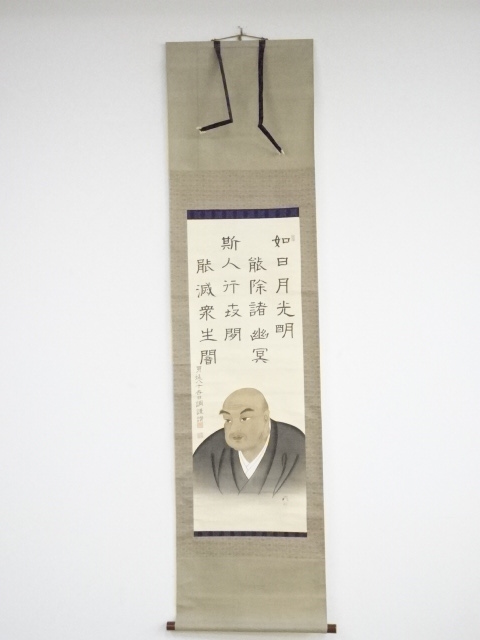 如日月光明
能除諸幽冥
斯人行世間
能滅衆生闇